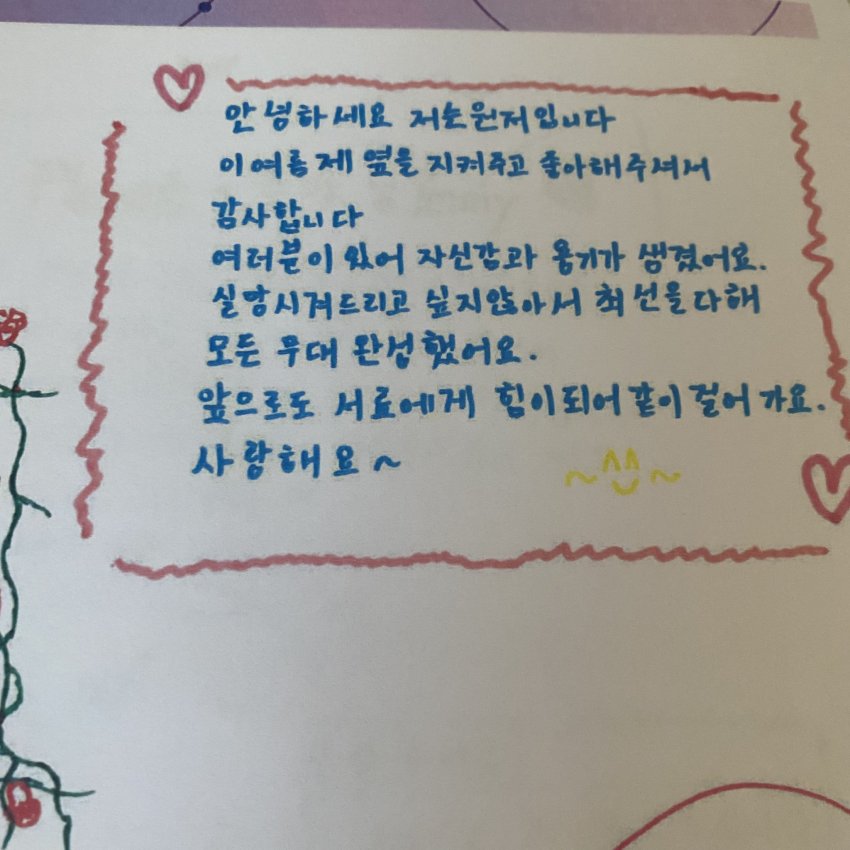 안녕하세요 저는 원저입니다
이 여름 제 옆을 지켜주고 좋아해주셔서
감사합니다
여러분이 있어 자신감과 용기가 생겼어요.
실망시켜드리고 싶지않아서 최선을다해
모든 무대 완성했어요.
앞으로도 서료에게 힘이되어 같이 걸어 가요.
사랑해요~